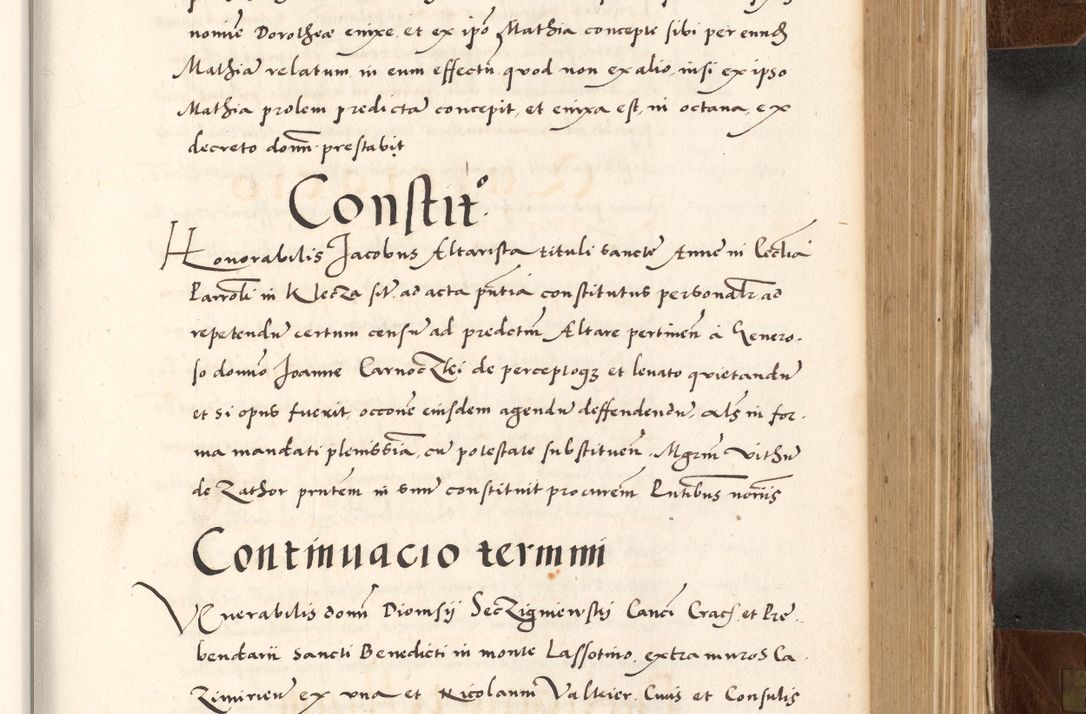 nomie Dorotheæ enixe, et ex ipo Mathia concepte sibi per eundē
Mathiā relatum in eum effectū quod non ex alio, nisi ex ipso
Mathia prolem predictā concepit, et enixa est, in octaua, ex
decreto domī prestabit
Constit⁰.
Honorabilis Jacobus Altarista tituli sanctę Annę in Ecclia
Parroli in Klecza sit. ad acta pntia constitutus personalr ad
repetendū certum censū ad predctm Altare pertinēn à Genero.
so domīo Joanne Carnoczki de perceptoqз et leuato quietandū
et si opus fuerit, occone eiusdem agendū deffendendū, Als in for.
ma mandati plenissīa, cū potestate substituēn. Mgrm Vithū
de Zathor pntem in suū constituit procurēm Pntibus noriis
Continuacio termini
Venerabilis domī Dionisij Seczigniewskij Canci Crac̄. et Pre.
bendarii Sancti Benedicti in monte Lassotino, extra muros Ca.
zimirien̄ ex vna et Nicolaum Valteier, Ciuis et Consulis